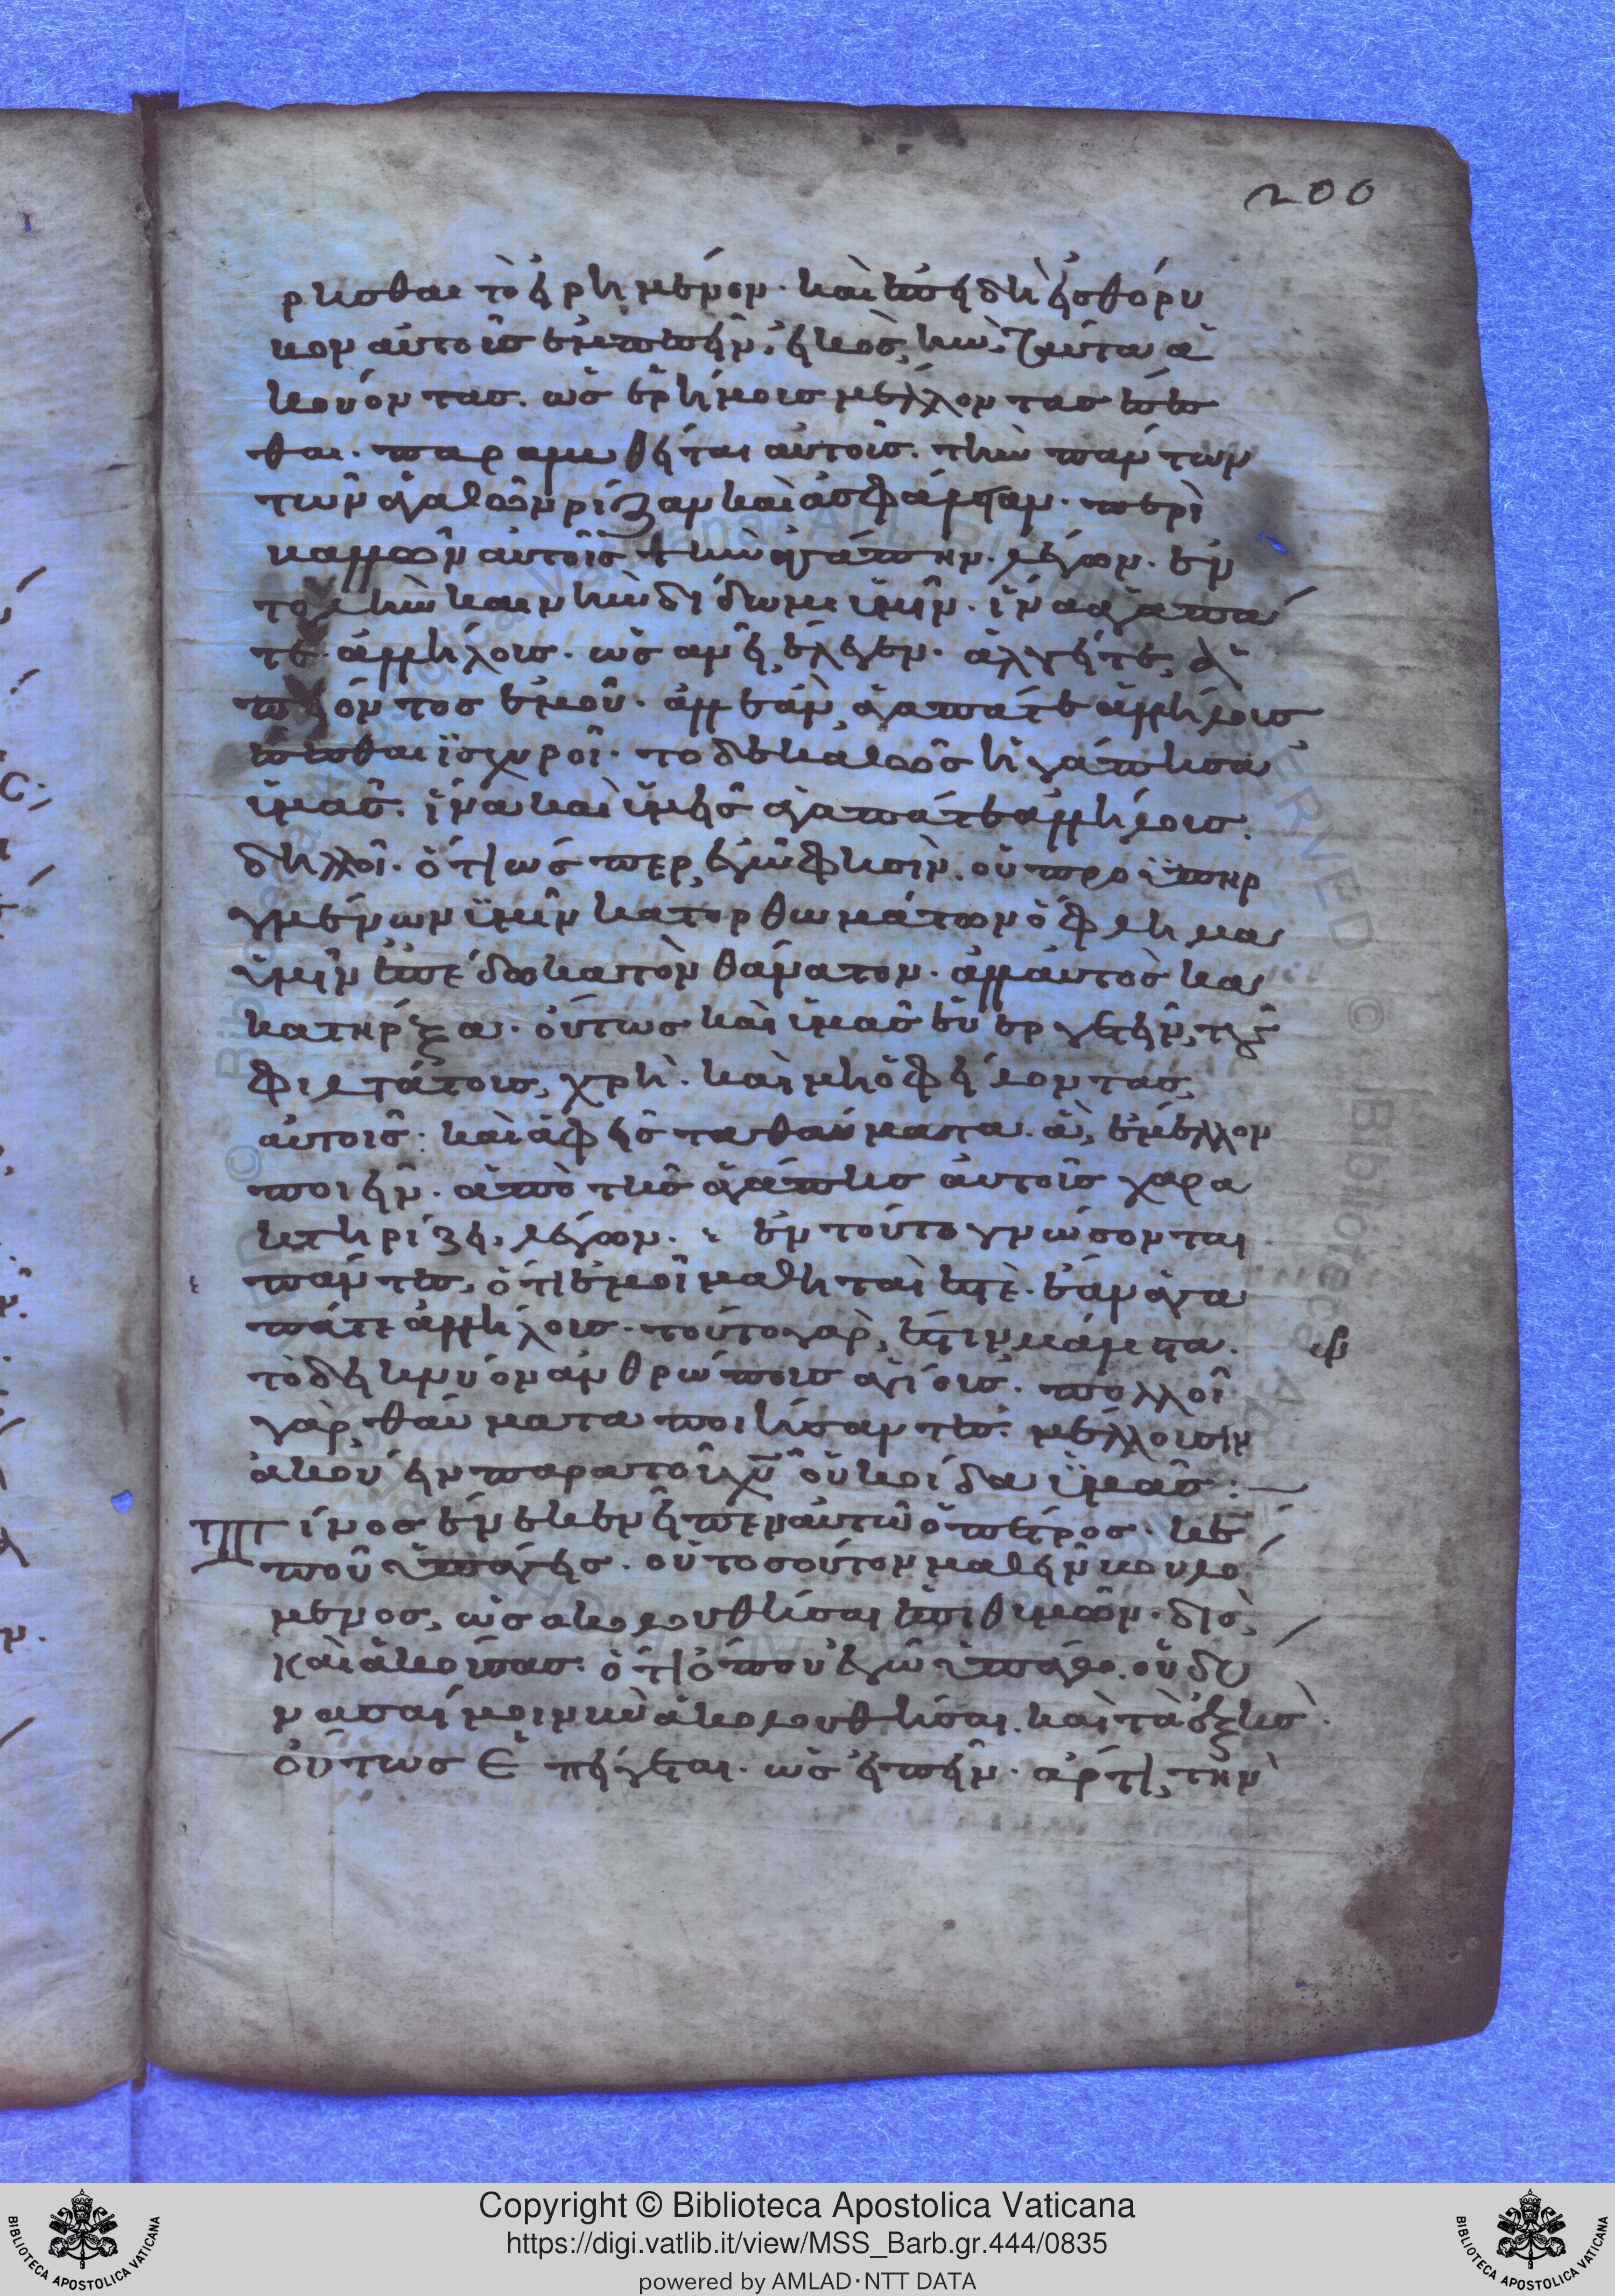 200
ρησθαι τὸ εἰρημένον· καὶ ἐπειδὴ εἰσ θόρυ
βον αὐτοὺσ ἐμπεσεῖν, εἰκὸσ ἦν, ταῦτα ἀ
κούοντασ. ὡσ ἐρήμουσ μέλλοντασ ἔσεσ
θαι. παραμυθεῖται αὐτοὺσ. τὴν πάντων
τῶν ἀγαθῶν ρίζαν καὶ ἀσφάλειαν. περι
βαλλὼν αὐτοῖσ τὴν ἀγάπην. λέγων. ἐν
τολὴν καινὴν δίδωμι ὑμῖν. ἵνα ἀγαπᾶ
τε ἀλλήλουσ. ὡσανεὶ ἔλεγεν. ἀλγεῖτε, ἀ
πιόντοσ ἐμοῦ. ἀλλ' ἐὰν ἀγαπᾶτε ἀλλήλουσ
ἔσεσθαι ἰσχυροί. το δε καθὼσ ἠγάπησα
ὑμᾶσ. ἵνα καὶ ὑμεῖσ ἀγαπᾶτε ἀλλήλουσ.
δηλοῖ. ὅτι ὥσπερ ἐγὼ φησὶν. οὐ προϋπηρ
γμένων ὑμῖν κατορθωμάτων ὀφείλημα
ὑμῖν ἐπέδωκα τὸν θάνατον. ἀλλ' αὐτὸσ και
κατῆρξα. οὕτωσ καὶ ὑμᾶσ εὐεργετεῖν, τοὺσ
φιλτάτουσ, χρή. καὶ μὴ ὀφείλοντασ,
αὐτοῖσ. καὶ ἀφεὶσ τα θαύματα. ἃ, ἔμελλον
ποιεῖν. ἀπὸ τῆσ ἀγάπησ αὐτοὺσ χαρα
κτηρίζει. λέγων. ἐν τούτο γνώσονται
πάντεσ, ὅτι ἐμοὶ μαθηταί ἐστε. ἐὰν ἀγα
πᾶτε ἀλλήλουσ. τοῦτο γὰρ, ἐστιν μάλιστα.
τὸ δεικνύον ἀνθρώπουσ ἁγίουσ. πολλοὶ
γὰρ θαύματα ποιήσαντεσ. μέλλουσιν
ἀκούειν παρα τοῦ χῦ οὐκ οἶδα ὑμᾶσ:
Τίνοσ ἕνεκεν εἶπεν αὐτῶ ὁ πέτροσ. κε
ποῦ ὑπάγεισ. οὐ τοσοῦτον μαθεῖν βουλό
μενοσ, ὡσ ἀκολουθῆσαι ἐπιθυμῶν. διὸ,
καὶ ἀκούσασ. ὅτι ὅπου ἐγὼ ὑπάγω. οὐ δύ
νασαί μοι νῦν ἀκολουθῆσαι. καὶ τὰ ἑξῆσ.
οὕτωσ ἐπείγεται. ὡσ εἰπεῖν. ἄρτι, τὴν
Copyright © Biblioteca Apostolica Vaticana
https://digi.vatlib.it/view/MSS_Barb.gr.444/0835
powered by AMLAD·NTT DATA